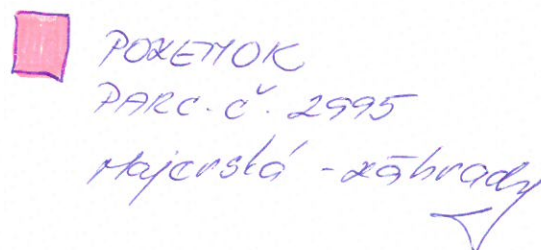 POZEMOK
PARC. č. 2995
Majerská - záhrady